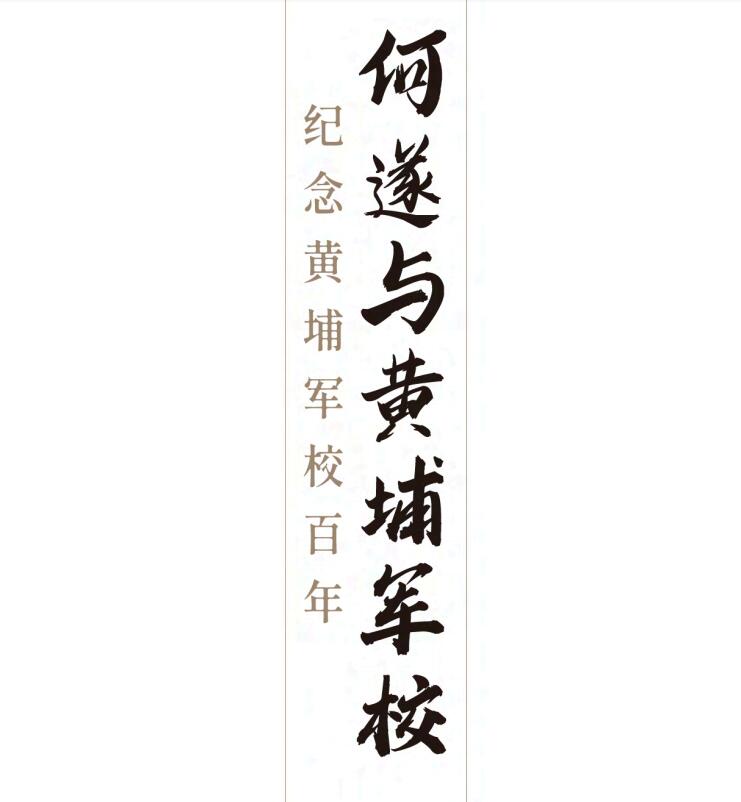 何遂与黄埔军校
纪念黄埔军校百年